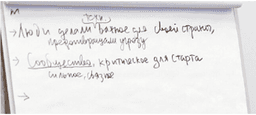 Тезисы
→ Люди делали важное для своей страны,
предотвращали угрозу
→ Сообщество, критическое для старта
сильное, связное
→